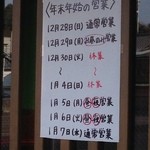 〈年末年始の営業〉
12月28日(日) 通常営業
12月29日(月)
12月30日(火) 休業
〜 〜
1月4日(日) 休業
1月5日(月) 営業
1月6日(火) 営業
1月7日(水) 通常営業